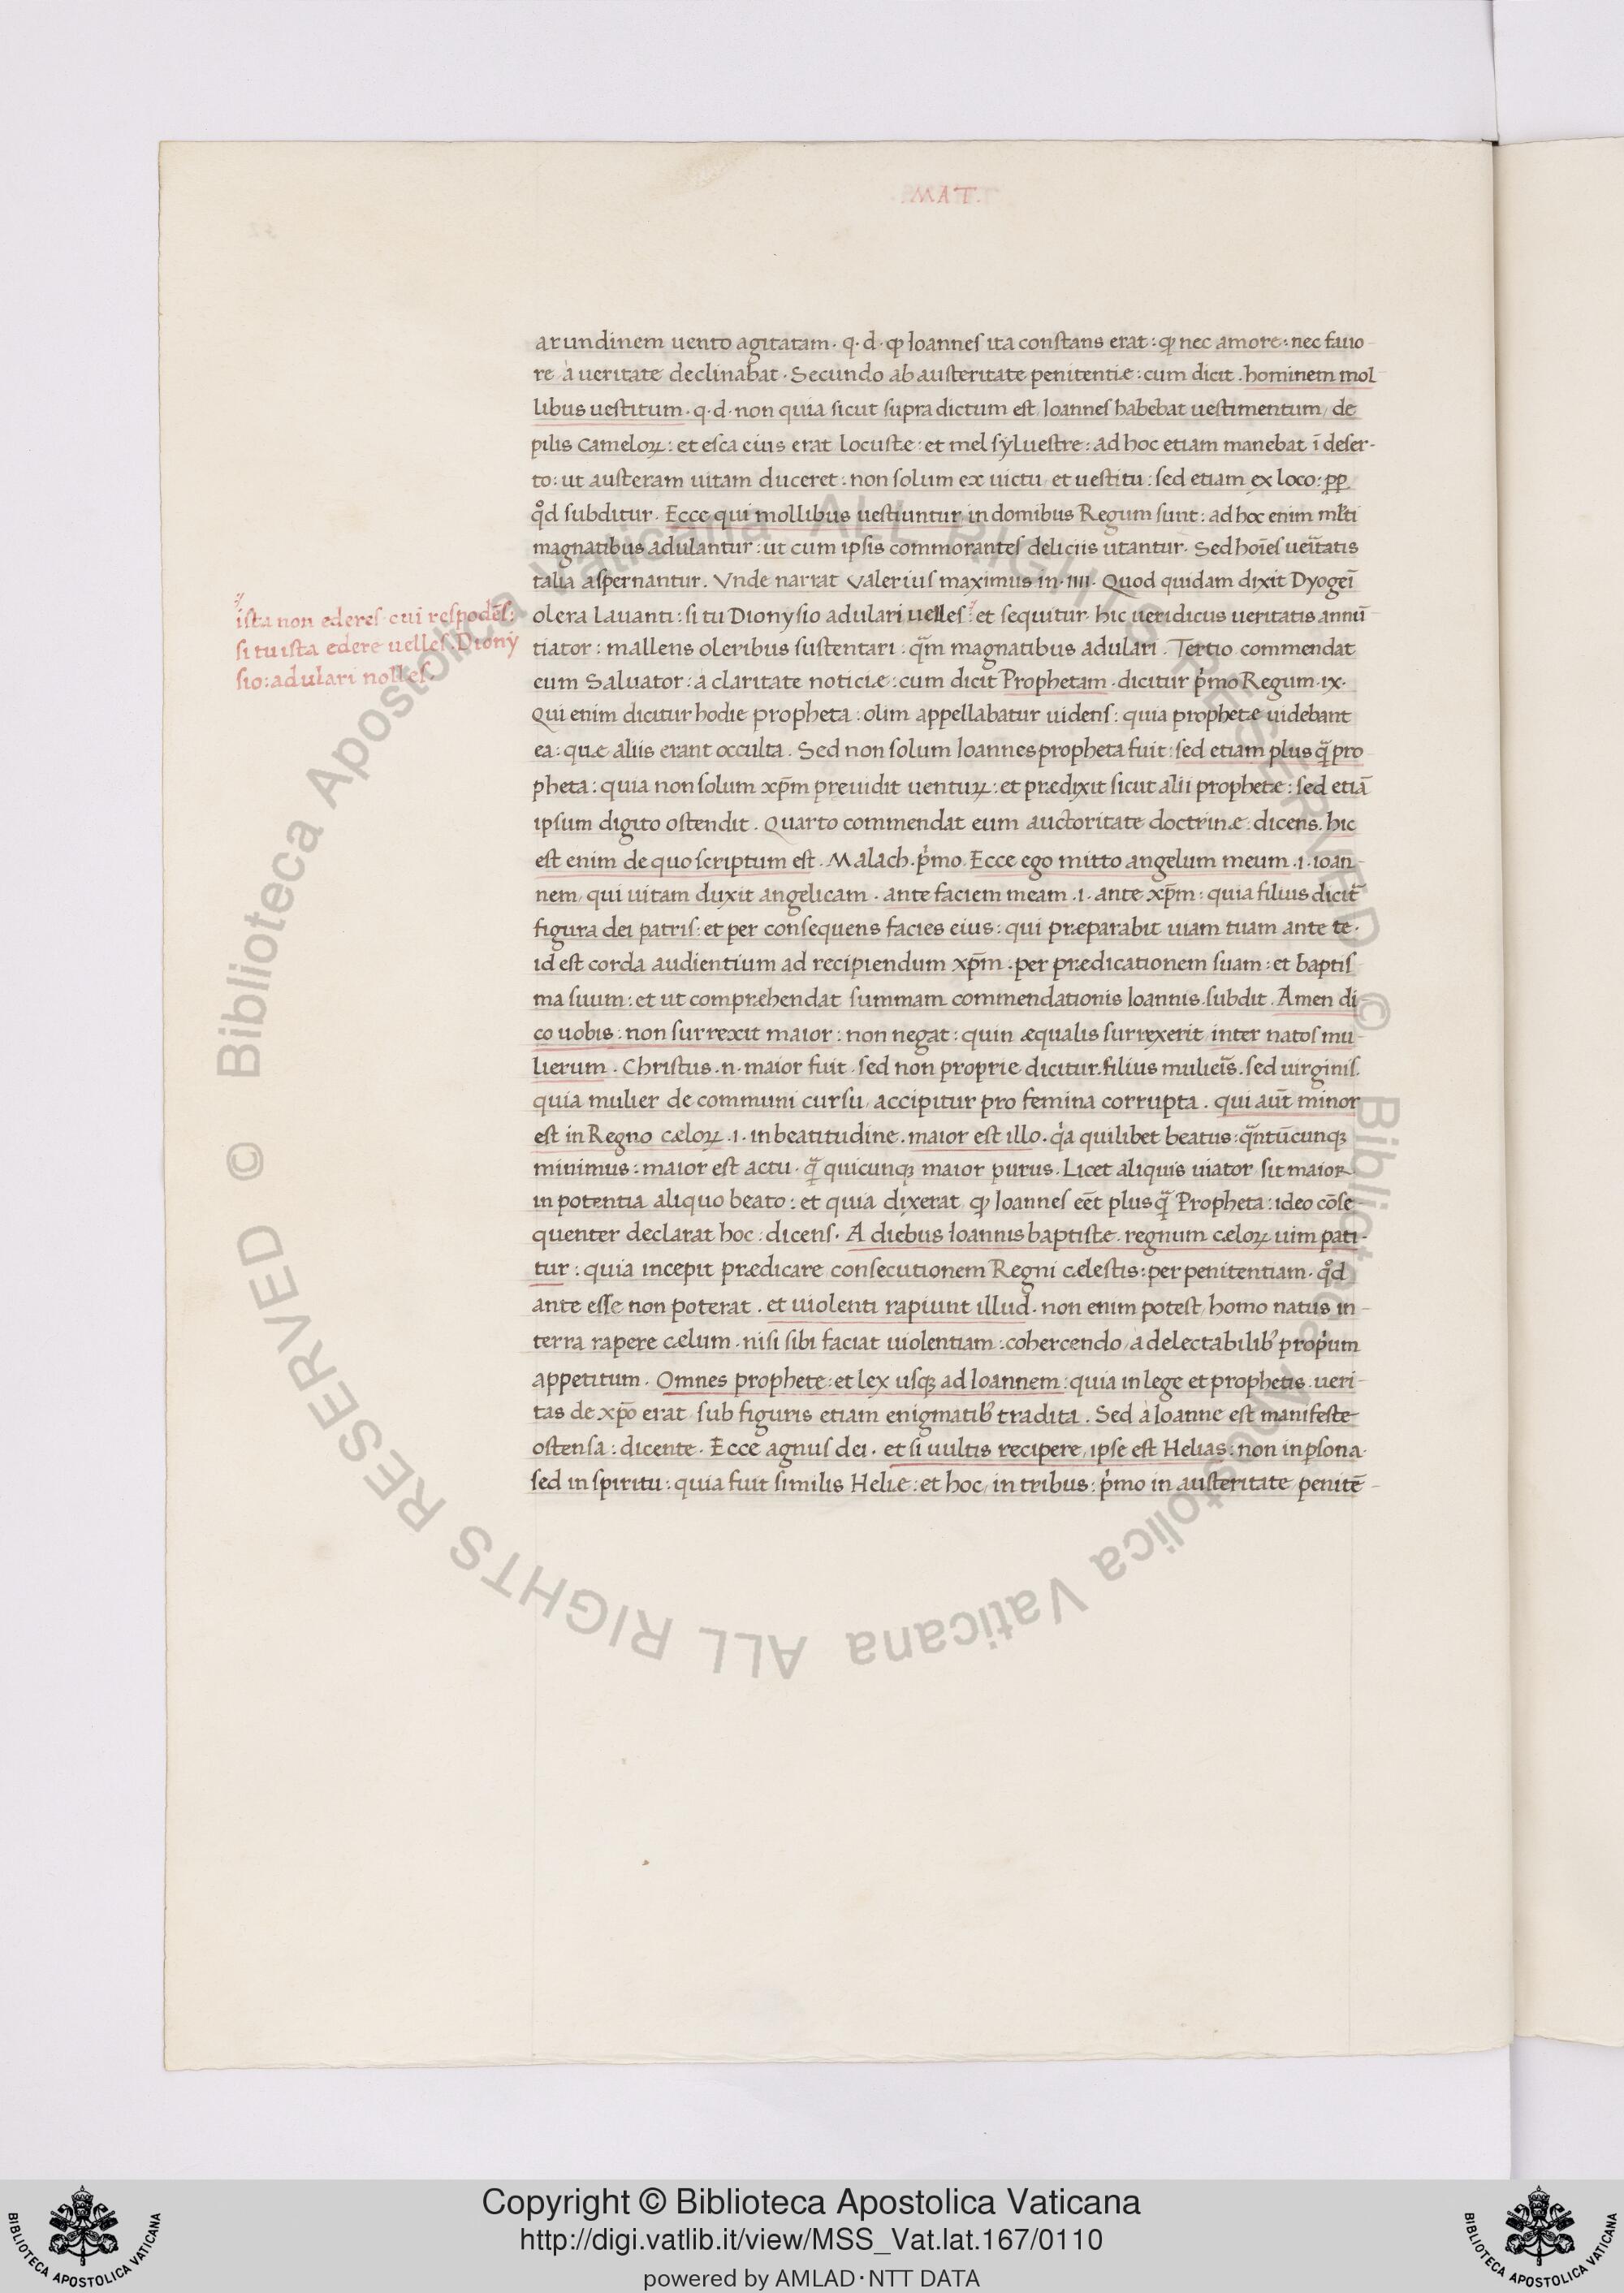 MAT.
arundinem uento agitatam. q. d. ꝙ Ioannes ita constans erat: ꝙ nec amore: nec fauo-
re à ueritate declinabat. Secundo ab austeritate penitentiæ: cum dicit. hominem mol
libus uestitum. q. d. non quia sicut supra dictum est, Ioannes habebat uestimentum, de
pilis cameloꝝ: et esca eius erat locustæ: et mel syluestre: ad hoc etiam manebat ī deser-
to: ut austeram uitam duceret: non solum ex uictu, et uestitu: sed etiam ex loco: ꝓꝑ
qd̊ subditur. Ecce qui mollibus uestiuntur, in domibus Regum sunt: ad hoc enim ml̄ti
magnatibus adulantur: ut cum ipsis commorantes deliciis utantur. Sed hoīes ueītatis
talia aspernantur. Vnde narrat Valerius maximus in. IIII. Quod quidam dixit Dyogeī
ista non ederes. cui respodēs:
si tu ista edere uelles. Diony
sio: adulari nolles.
olera lauanti: si tu Dionysio adulari uelles: et sequitur. hic ueridicus ueritatis annū
tiator: mallens oleribus sustentari: q̄m magnatibus adulari. Tertio commendat
eum Saluator: a claritate noticiæ: cum dicit Prophetam. dicitur p̍mo Regum. ix.
Qui enim dicitur hodie propheta: olim appellabatur uidens: quia prophetæ uidebant
ea: quæ aliis erant occulta. Sed non solum Ioannes propheta fuit: sed etiam plus q̄ pro
pheta: quia non solum xp̄m preuidit uentuꝝ: et prædixit sicut alii prophetæ: sed etiā
ipsum digito ostendit. Quarto commendat eum auctoritate doctrinæ: dicens. hic
est enim de quo scriptum est. Malach. p̍mo. Ecce ego mitto angelum meum. i. ioan-
nem, qui uitam duxit angelicam. ante faciem meam. i. ante xp̄m: quia filius dicit᷑
figura dei patris: et per consequens facies eius: qui præparabit uiam tuam ante te.
id est corda audientium ad recipiendum xp̄m. per prædicationem suam: et baptis
ma suum: et ut comprehendat summam commendationis Ioannis. subdit. Amen di-
co uobis: non surrexit maior: non negat: quin æqualis surrexerit, inter natos mu-
lierum. Christus. n. maior fuit. sed non proprie dicitur. filius mulieīs. sed uirginis.
quia mulier de communi cursu, accipitur pro femina corrupta. qui aūt minor
est in Regno cæloꝝ. i. in beatitudine. maior est illo. q̍a quilibet beatus: q̄ntūcunqꝫ
minimus: maior est actu. q̄ quicunqꝫ maior purus. Licet aliquis uiator sit maior
in potentia aliquo beato: et quia dixerat ꝙ Ioannes eēt plus q̄ Propheta: ideo cōse-
quenter declarat hoc: dicens. A diebus Ioannis baptistæ. regnum cæloꝝ uim pati-
tur: quia incepit prædicare consecutionem Regni cælestis: per penitentiam. qd̊
ante esse non poterat. et uiolenti rapiunt illud. non enim potest, homo natus in-
terra rapere cælum. nisi sibi faciat uiolentiam: cohercendo, a delectabilib᷒ prop̍um
appetitum. Omnes prophete: et lex usqꝫ ad Ioannem: quia in lege et prophetis. ueri-
tas de xp̄o erat, sub figuris etiam enigmatib᷒ tradita. Sed à Ioanne est manifeste
ostensa: dicente. Ecce agnus dei. et si uultis recipere, ipse est Helias: non in ꝑsona.
sed in spiritu: quia fuit similis Heliæ: et hoc, in tribus: p̍mo in austeritate, penitē-
© Biblioteca Apostolica Vaticana ALL RIGHTS RESERVED © Biblioteca Apostolica Vaticana ALL RIGHTS RESERVED
Copyright © Biblioteca Apostolica Vaticana
http://digi.vatlib.it/view/MSS_Vat.lat.167/0110
powered by AMLAD·NTT DATA
BIBLIOTECA APOSTOLICA VATICANA
BIBLIOTECA APOSTOLICA VATICANA